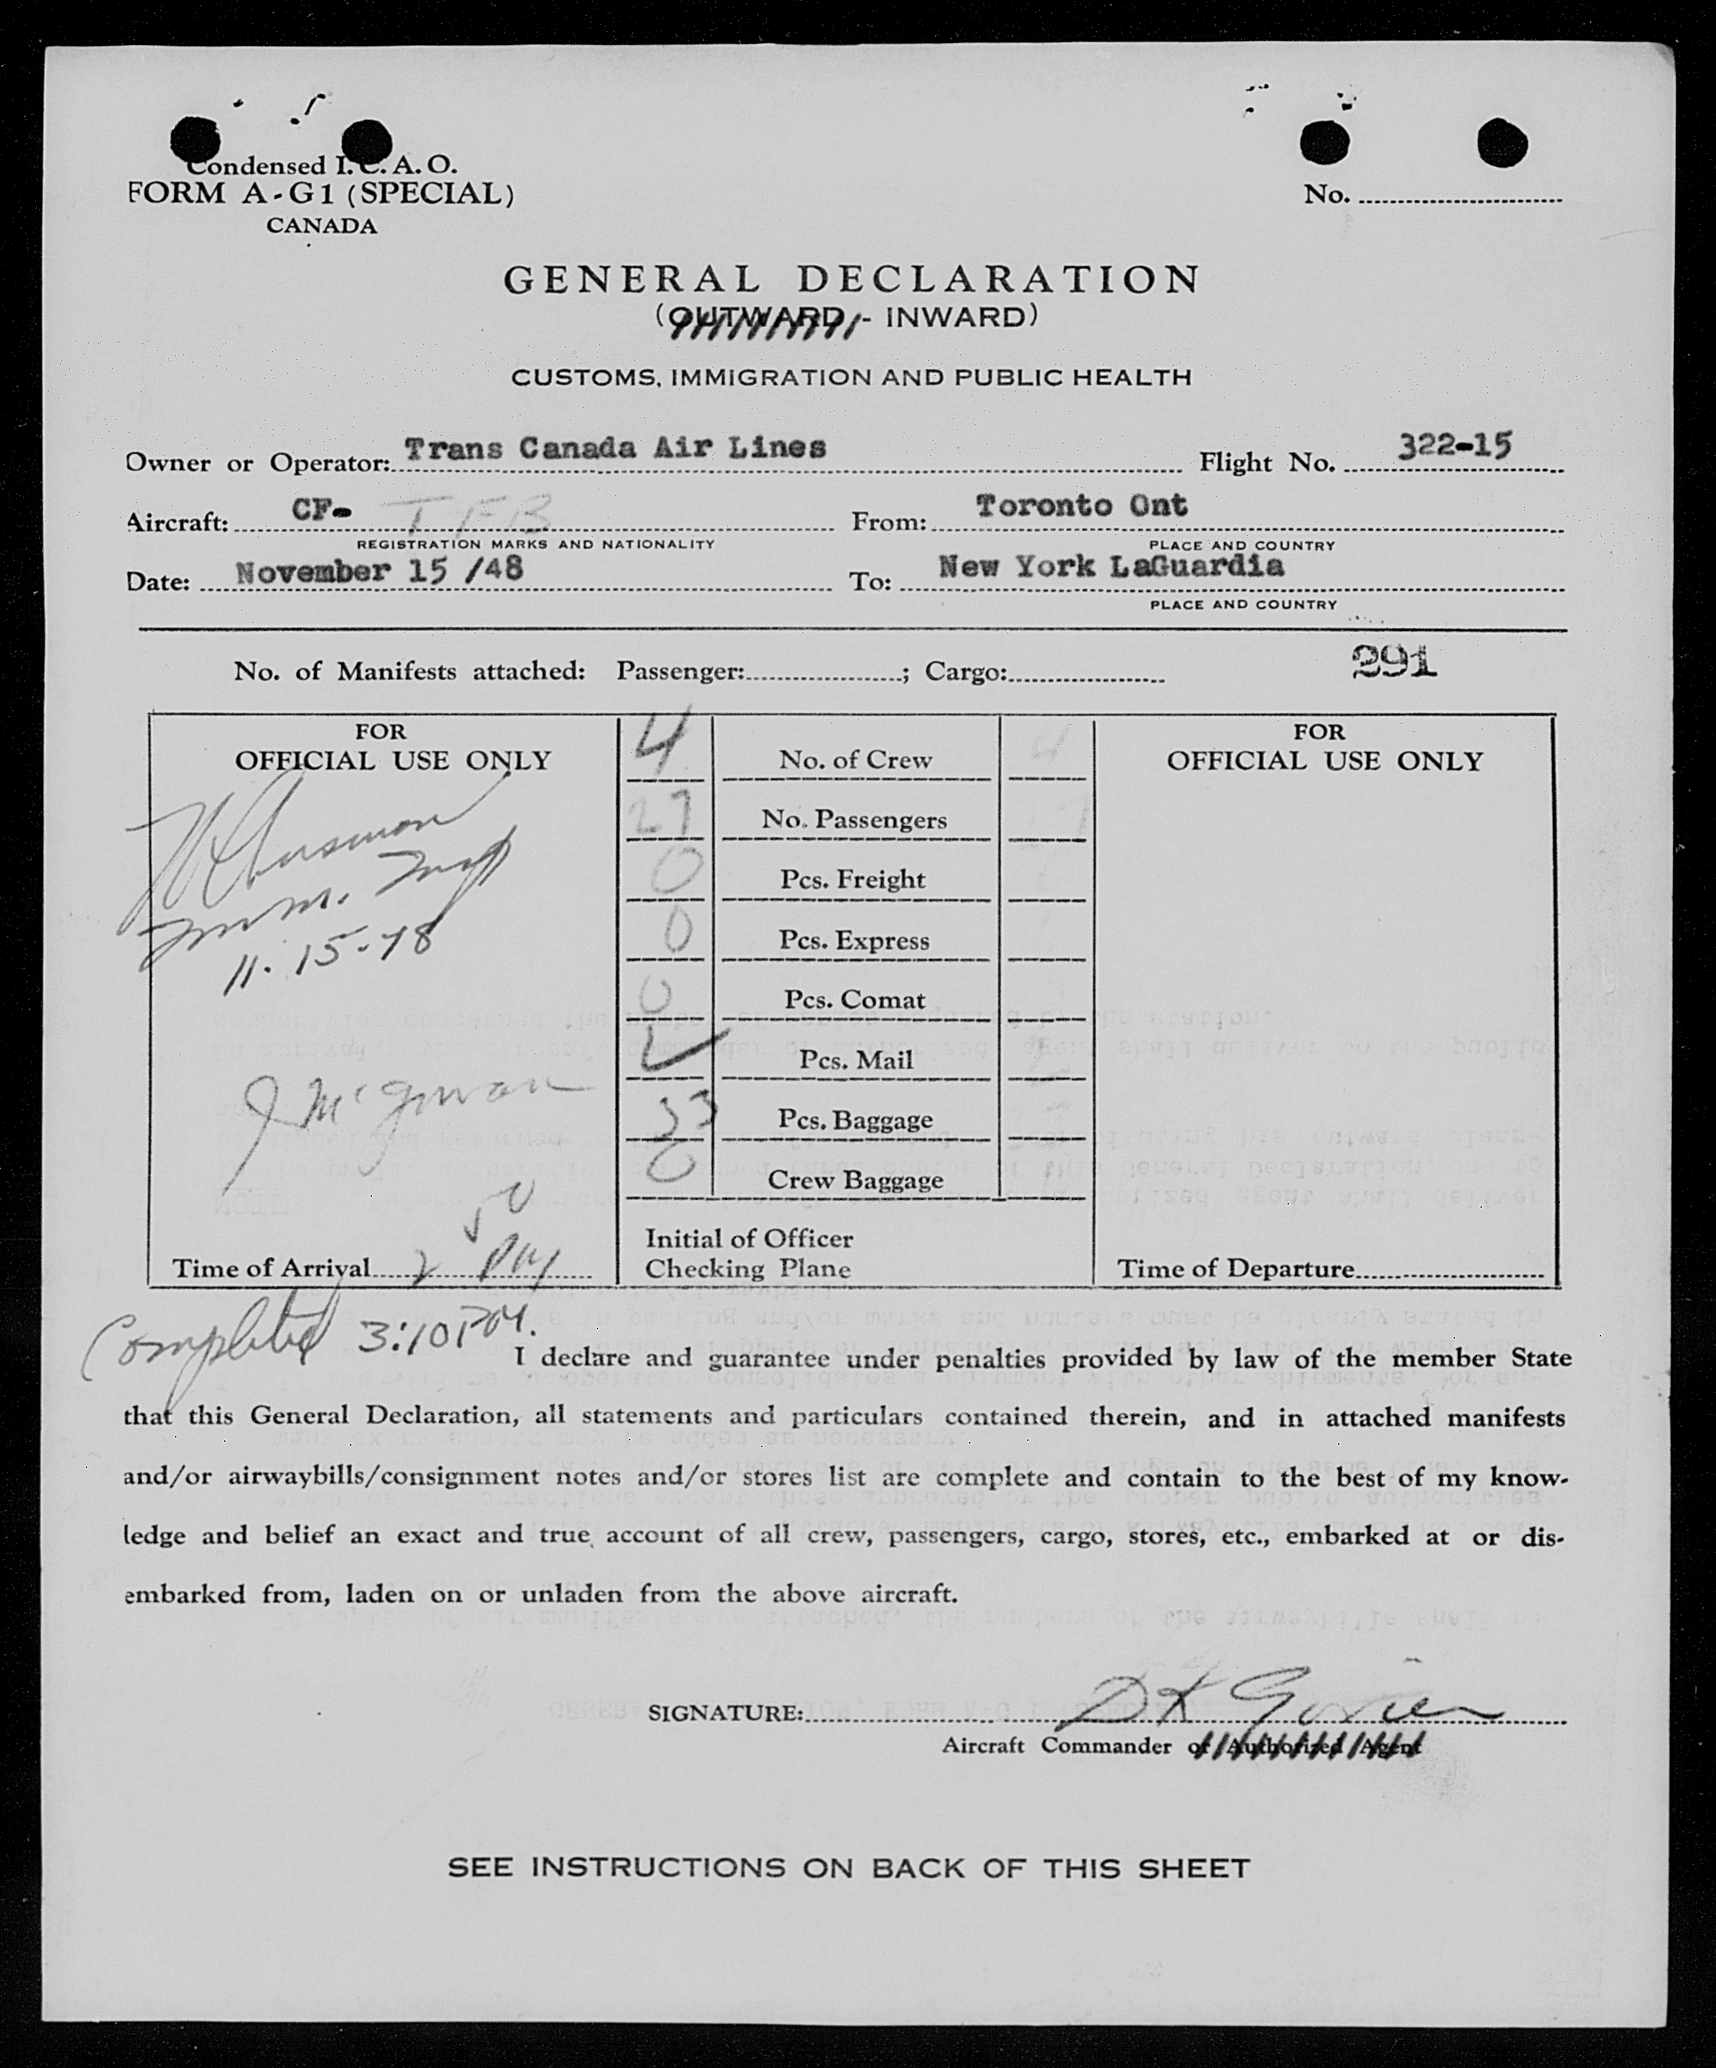 Condensed I. C. A. O.
FORM A-G1 (SPECIAL)
CANADA
No.
GENERAL DECLARATION
(OUTWARD - INWARD)
CUSTOMS, IMMIGRATION AND PUBLIC HEALTH
Owner or Operator: Trans Canada Air Lines Flight No. 322-15
Aircraft: CF- TFB From: Toronto Ont
REGISTRATION MARKS AND NATIONALITY PLACE AND COUNTRY
Date: November 15 /48 To: New York LaGuardia
PLACE AND COUNTRY
No. of Manifests attached: Passenger: ; Cargo: 291
FOR
OFFICIAL USE ONLY
Imm. Insp
11-15-48
J McGowan
50
Time of Arrival 2 PM
4 No. of Crew 4
27 No. Passengers
0 Pcs. Freight
0 Pcs. Express
0 Pcs. Comat
Pcs. Mail
33 Pcs. Baggage
0 Crew Baggage
Initial of Officer
Checking Plane
FOR
OFFICIAL USE ONLY
Time of Departure
Completed 3:10 PM.
I declare and guarantee under penalties provided by law of the member State
that this General Declaration, all statements and particulars contained therein, and in attached manifests
and/or airwaybills/consignment notes and/or stores list are complete and contain to the best of my know-
ledge and belief an exact and true account of all crew, passengers, cargo, stores, etc., embarked at or dis-
embarked from, laden on or unladen from the above aircraft.
SIGNATURE: D K
Aircraft Commander or Authorized Agent
SEE INSTRUCTIONS ON BACK OF THIS SHEET